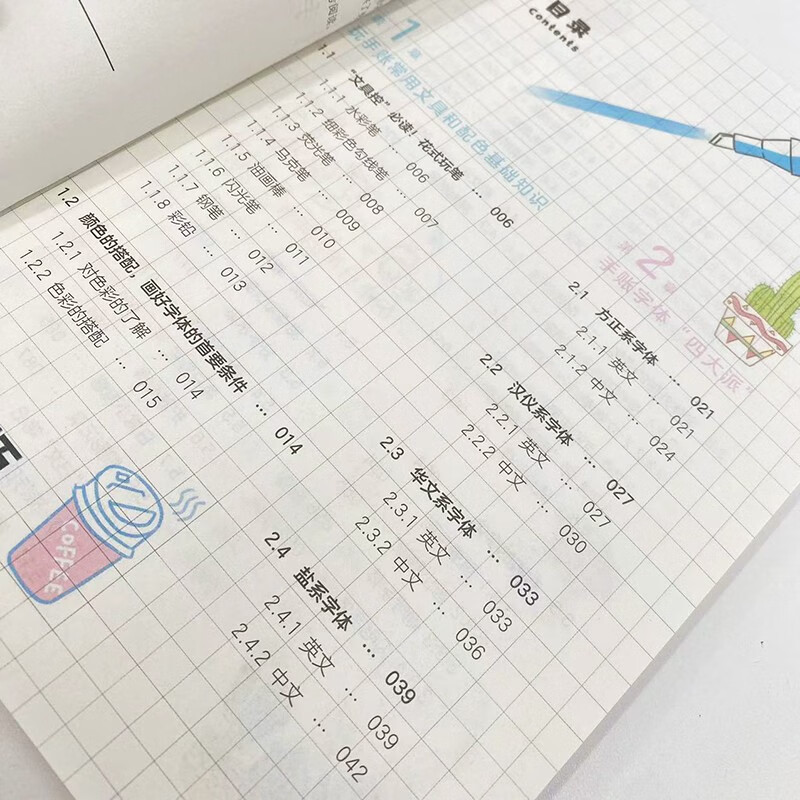 目录
Contents
第1章
玩手账常用文具和配色基础知识
1.1 “文具控”必读！花式玩笔 … 006
1.1.1 水彩笔 … 006
1.1.2 细彩色勾线笔 … 007
1.1.3 荧光笔 … 008
1.1.4 马克笔 … 009
1.1.5 油画棒 … 010
1.1.6 闪光笔 … 011
1.1.7 钢笔 … 012
1.1.8 彩铅 … 013
1.2 颜色的搭配，画好字体的首要条件 … 014
1.2.1 对色彩的了解 … 014
1.2.2 色彩的搭配 … 015
COFFEE
第2章
手账字体“四大派”
2.1 方正系字体 … 021
2.1.1 英文 … 021
2.1.2 中文 … 024
2.2 汉仪系字体 … 027
2.2.1 英文 … 027
2.2.2 中文 … 030
2.3 华文系字体 … 033
2.3.1 英文 … 033
2.3.2 中文 … 036
2.4 盐系字体 … 039
2.4.1 英文 … 039
2.4.2 中文 … 042